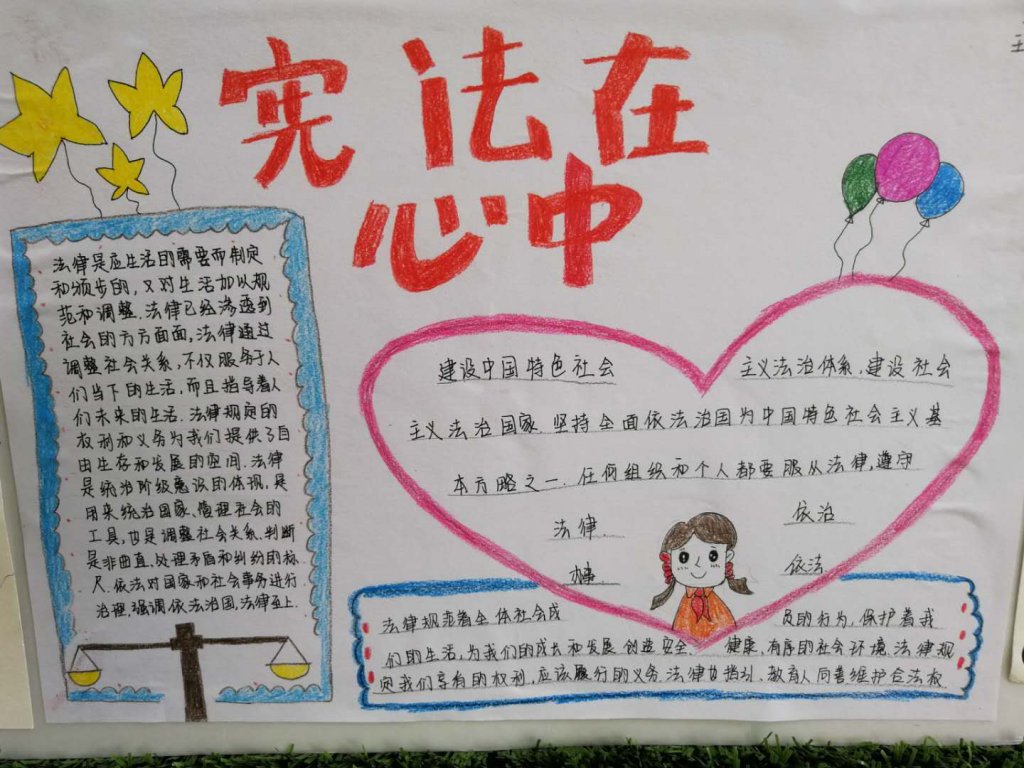 宪法在
心中
法律是应生活的需要而制定
和颁步的,又对生活加以规
范和调整.法律已经渗透到
社会的方方面面,法律通过
调整社会关系,不仅服务于人
们当下的生活,而且指导着人
们未来的生活.法律规定的
权利和义务为我们提供了自
由生存和发展的空间.法律
是统治阶级意识的体现,是
用来统治国家、管理社会的
工具,也是调整社会关系、判断
是非曲直、处理矛盾和纠纷的标
尺.依法对国家和社会事务进行
治理,强调依法治国,法律至上.
建设中国特色社会 主义法治体系、建设社会
主义法治国家.坚持全面依法治国为中国特色社会主义基
本方略之一.任何组织和个人都要服从法律,遵守
法律 依治
依法
法律规范着全体社会成 员的行为,保护着我
们的生活,为我们的成长和发展创造安全、 健康、有序的社会环境.法律规
定我们享有的权利,应该履行的义务.法律 指引、教育人向善维护合法权